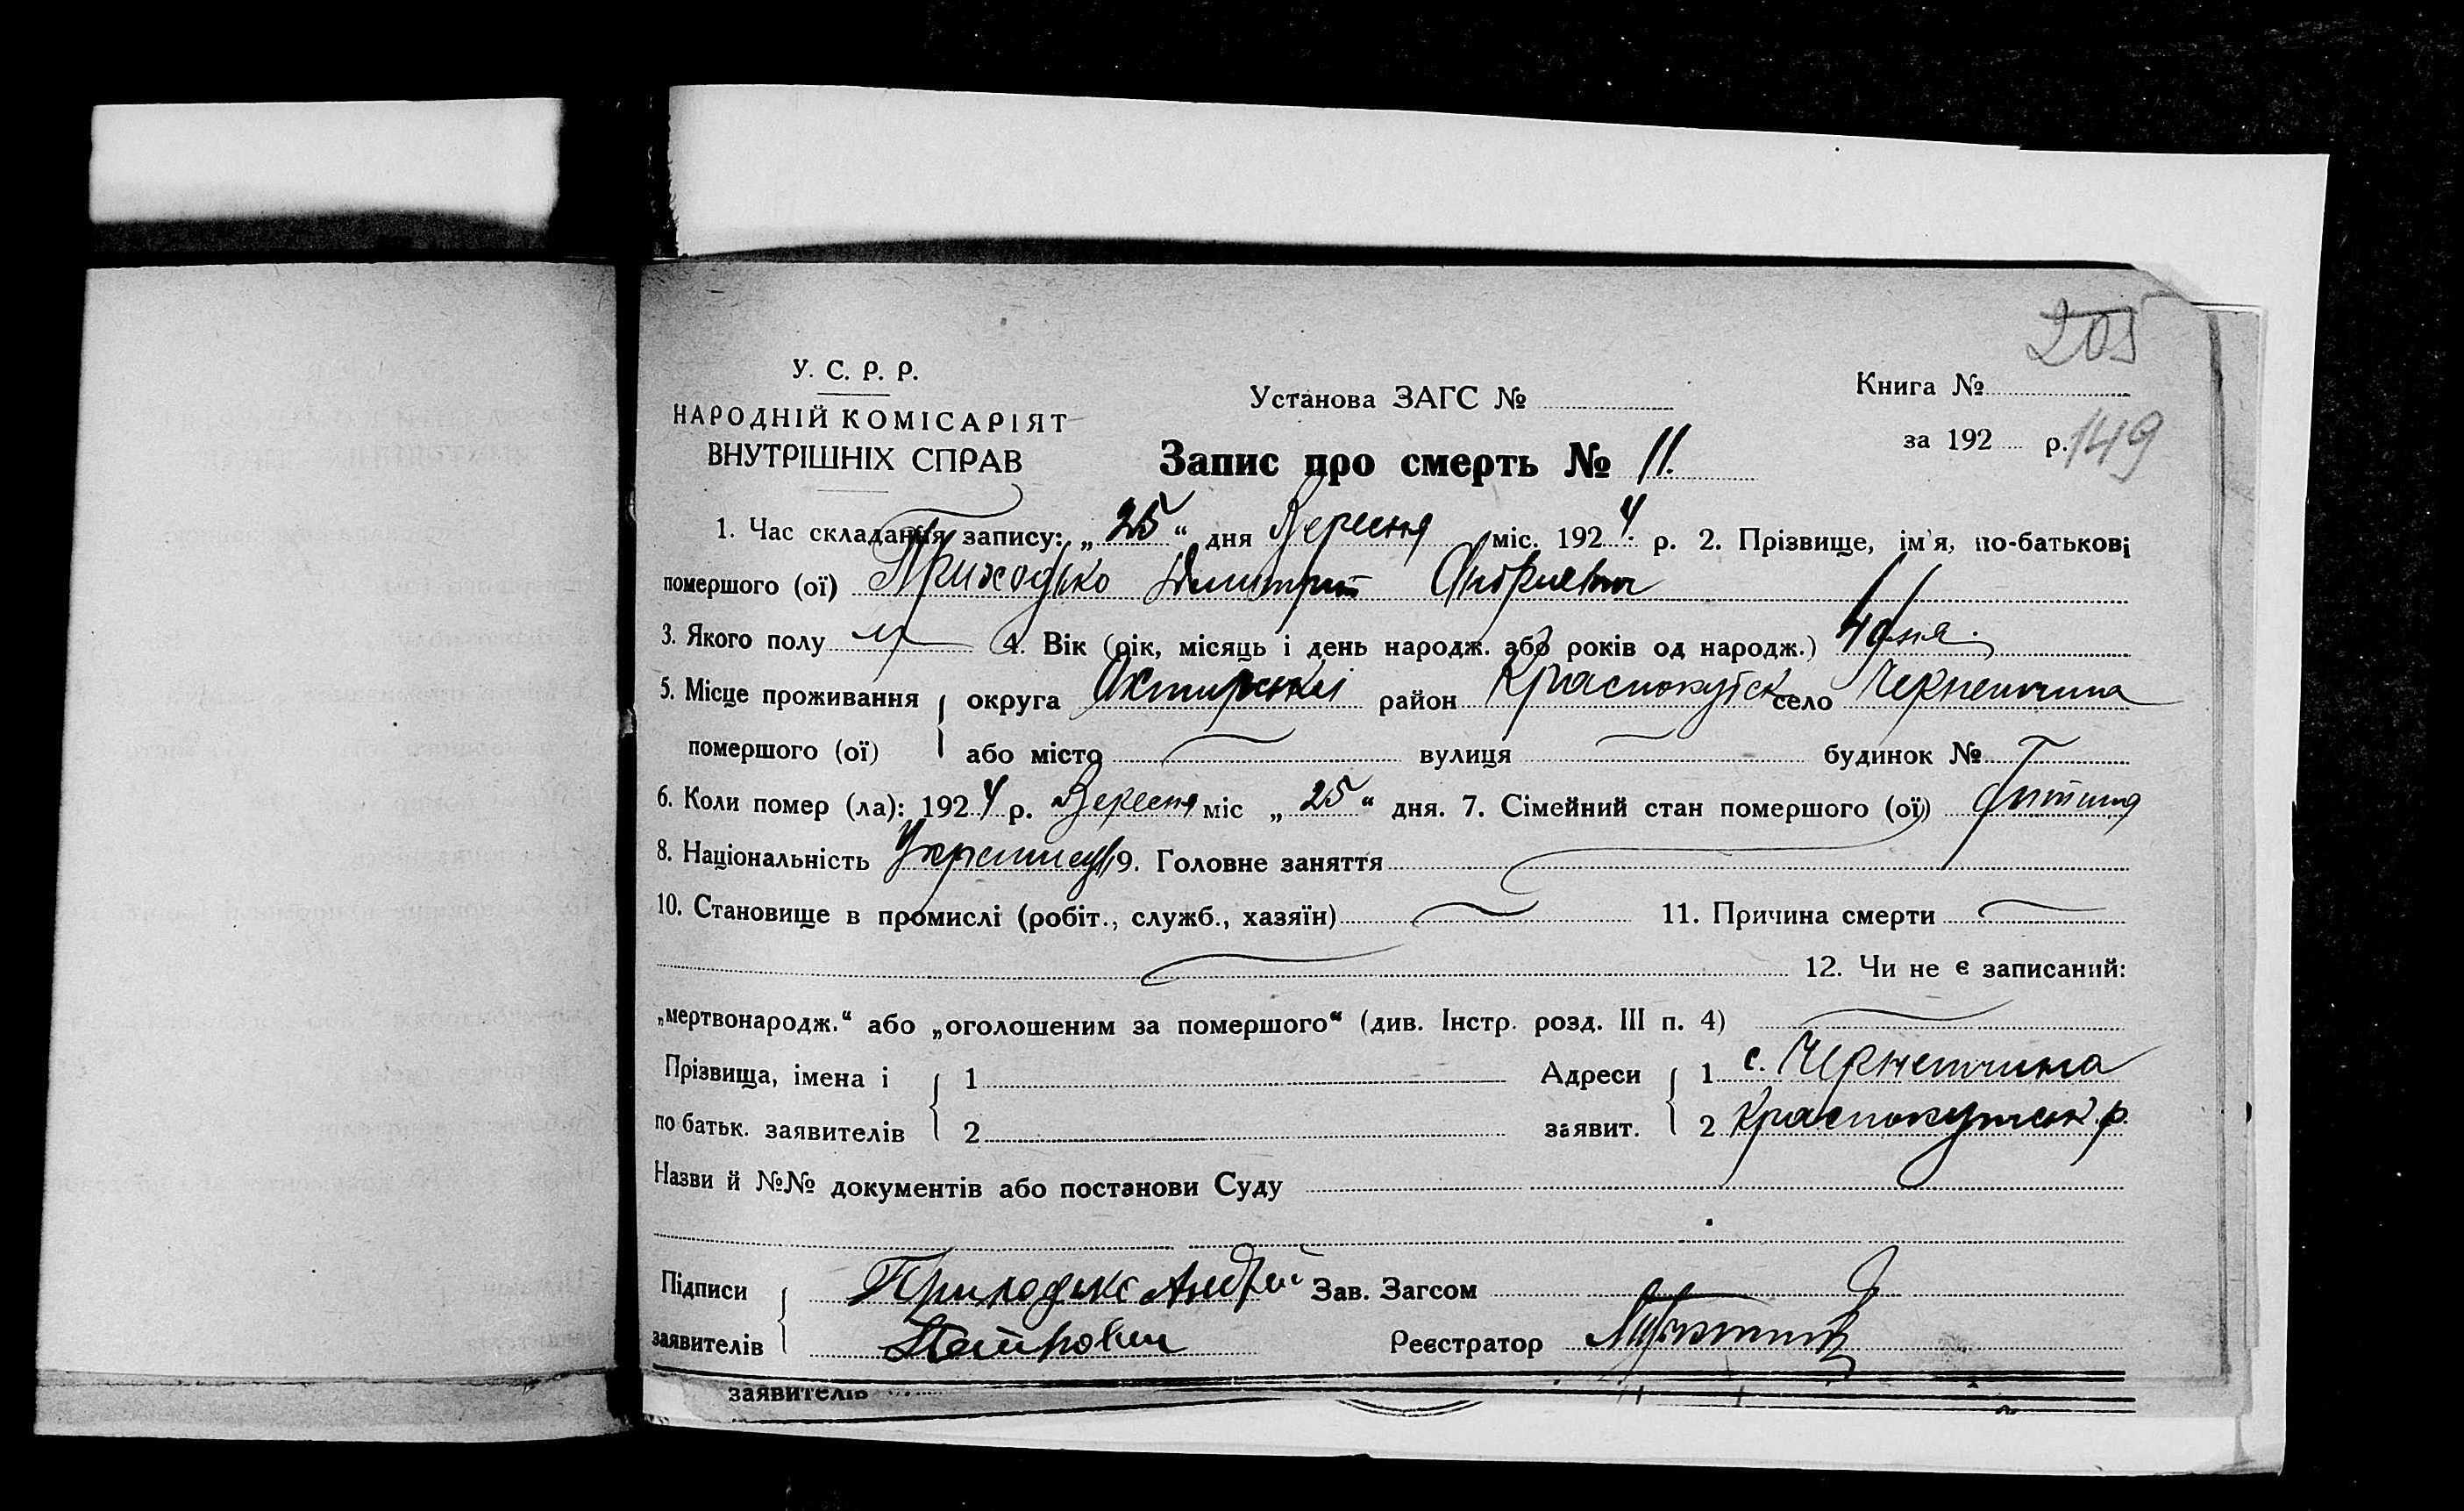 205
У. С. Р. Р.
НАРОДНІЙ КОМІСАРІЯТ
ВНУТРІШНІХ СПРАВ
Установа ЗАГС №
Книга №
за 192 р.
149
Запис про смерть № 11.
1. Час складання запису: „25“ дня Вересня міс. 1924. р. 2. Прізвище, ім'я, по-батькові
помершого (ої) Приходько Дмитрий Андриевич
3. Якого полу м 4. Вік (рік, місяць і день народж. або років од народж.) 4 дня.
5. Місце проживання округа Охтирської район Краснокутск село Чернеччина
помершого (ої) або місто вулиця будинок №
6. Коли помер (ла): 1924 р. Вересня міс „25“ дня. 7. Сімейний стан помершого (ої) дитина
8. Національність 9. Головне заняття
10. Становище в промислі (робіт., служб., хазяїн) 11. Причина смерти
12. Чи не є записаний:
„мертвонародж.“ або „оголошеним за помершого“ (див. Інстр. розд. III п. 4)
Прізвища, імена і 1 Адреси 1 с. Чернеччина
по батьк. заявителів 2 заявит. 2 Краснокутськ. р.
Назви й №№ документів або постанови Суду
Підписи Приходько Андрій Зав. Загсом
заявителів Реєстратор
заявителів